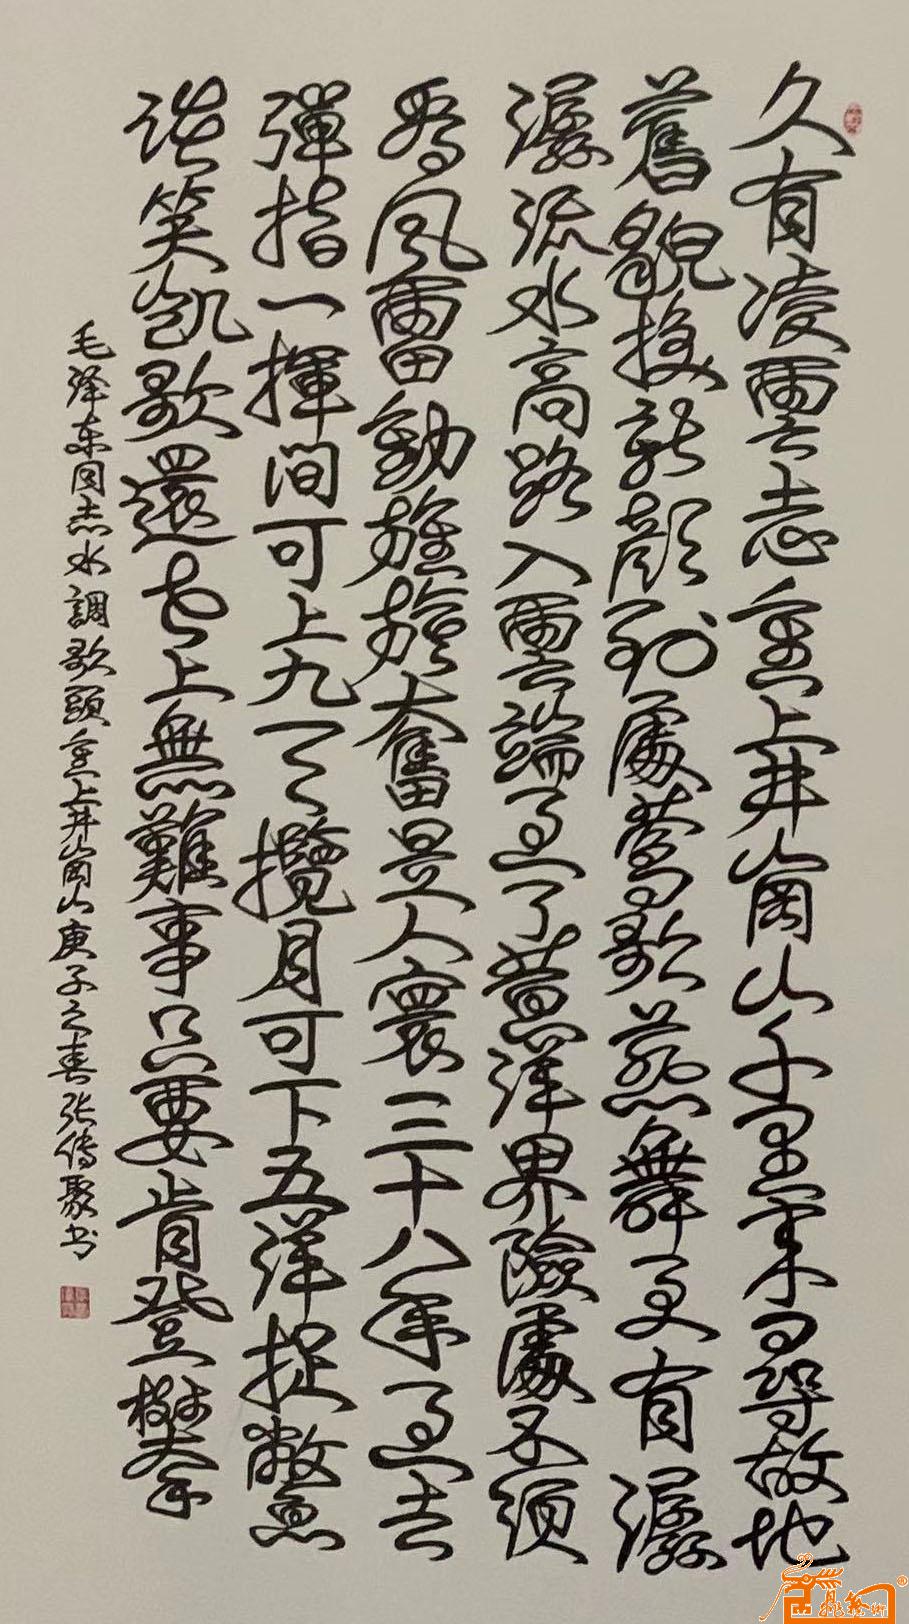 久有凌雲志重上井崗山千里来尋故地
舊貌換新顔到處鶯歌燕舞更有潺
潺流水高路入雲端過了黄洋界險處不須
看風雷動旌旗奮是人寰三十八年過去
彈指一揮間可上九天攬月可下五洋捉鱉
談笑凱歌還世上無難事只要肯登攀
毛泽东同志水調歌頭重上井崗山庚子之春张传聚书